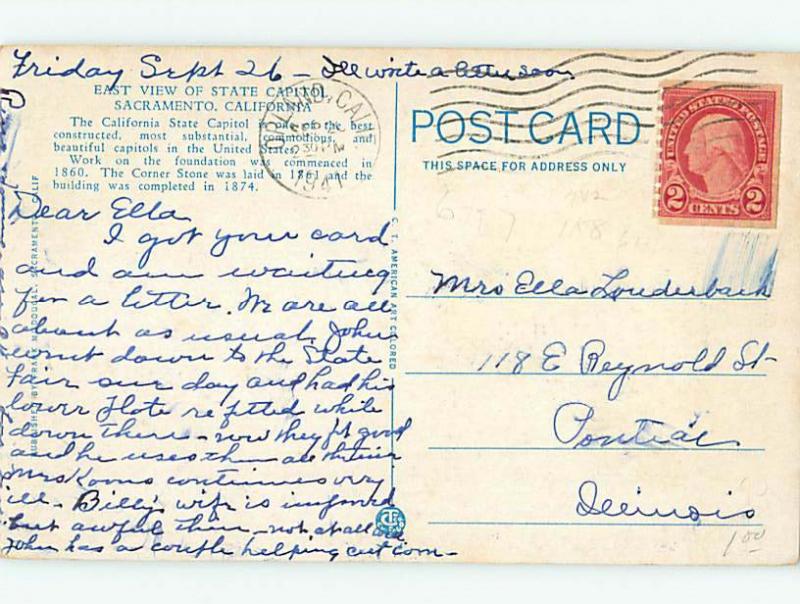 Friday Sept 26 - I'll write a letter soon
EAST VIEW OF STATE CAPITOL
SACRAMENTO, CALIFORNIA
The California State Capitol is one of the best
constructed, most substantial, commodious, and
beautiful capitols in the United States.
Work on the foundation was commenced in
1860. The Corner Stone was laid in 1861 and the
building was completed in 1874.
CAL
1941
Dear Ella
I got your card
and am waiting
for a letter. We are all
about as usual. John
went down to the State
Fair one day and had his
lower plate refitted while
down there - now they fit good
and he uses them all the time
Mrs Koons continues very
ill - Billy's wife is improved
but awful thin - not at all
John has a couple helping cut corn -
PUBLISHED BY FRANK McDOUGAL, SACRAMENTO, CALIF
C. T. AMERICAN ART COLORED
POST CARD
THIS SPACE FOR ADDRESS ONLY
UNITED STATES POSTAGE
2 CENTS 2
Mrs Ella Louderback
118 E Reynold St
Pontiac
Illinois
1.00